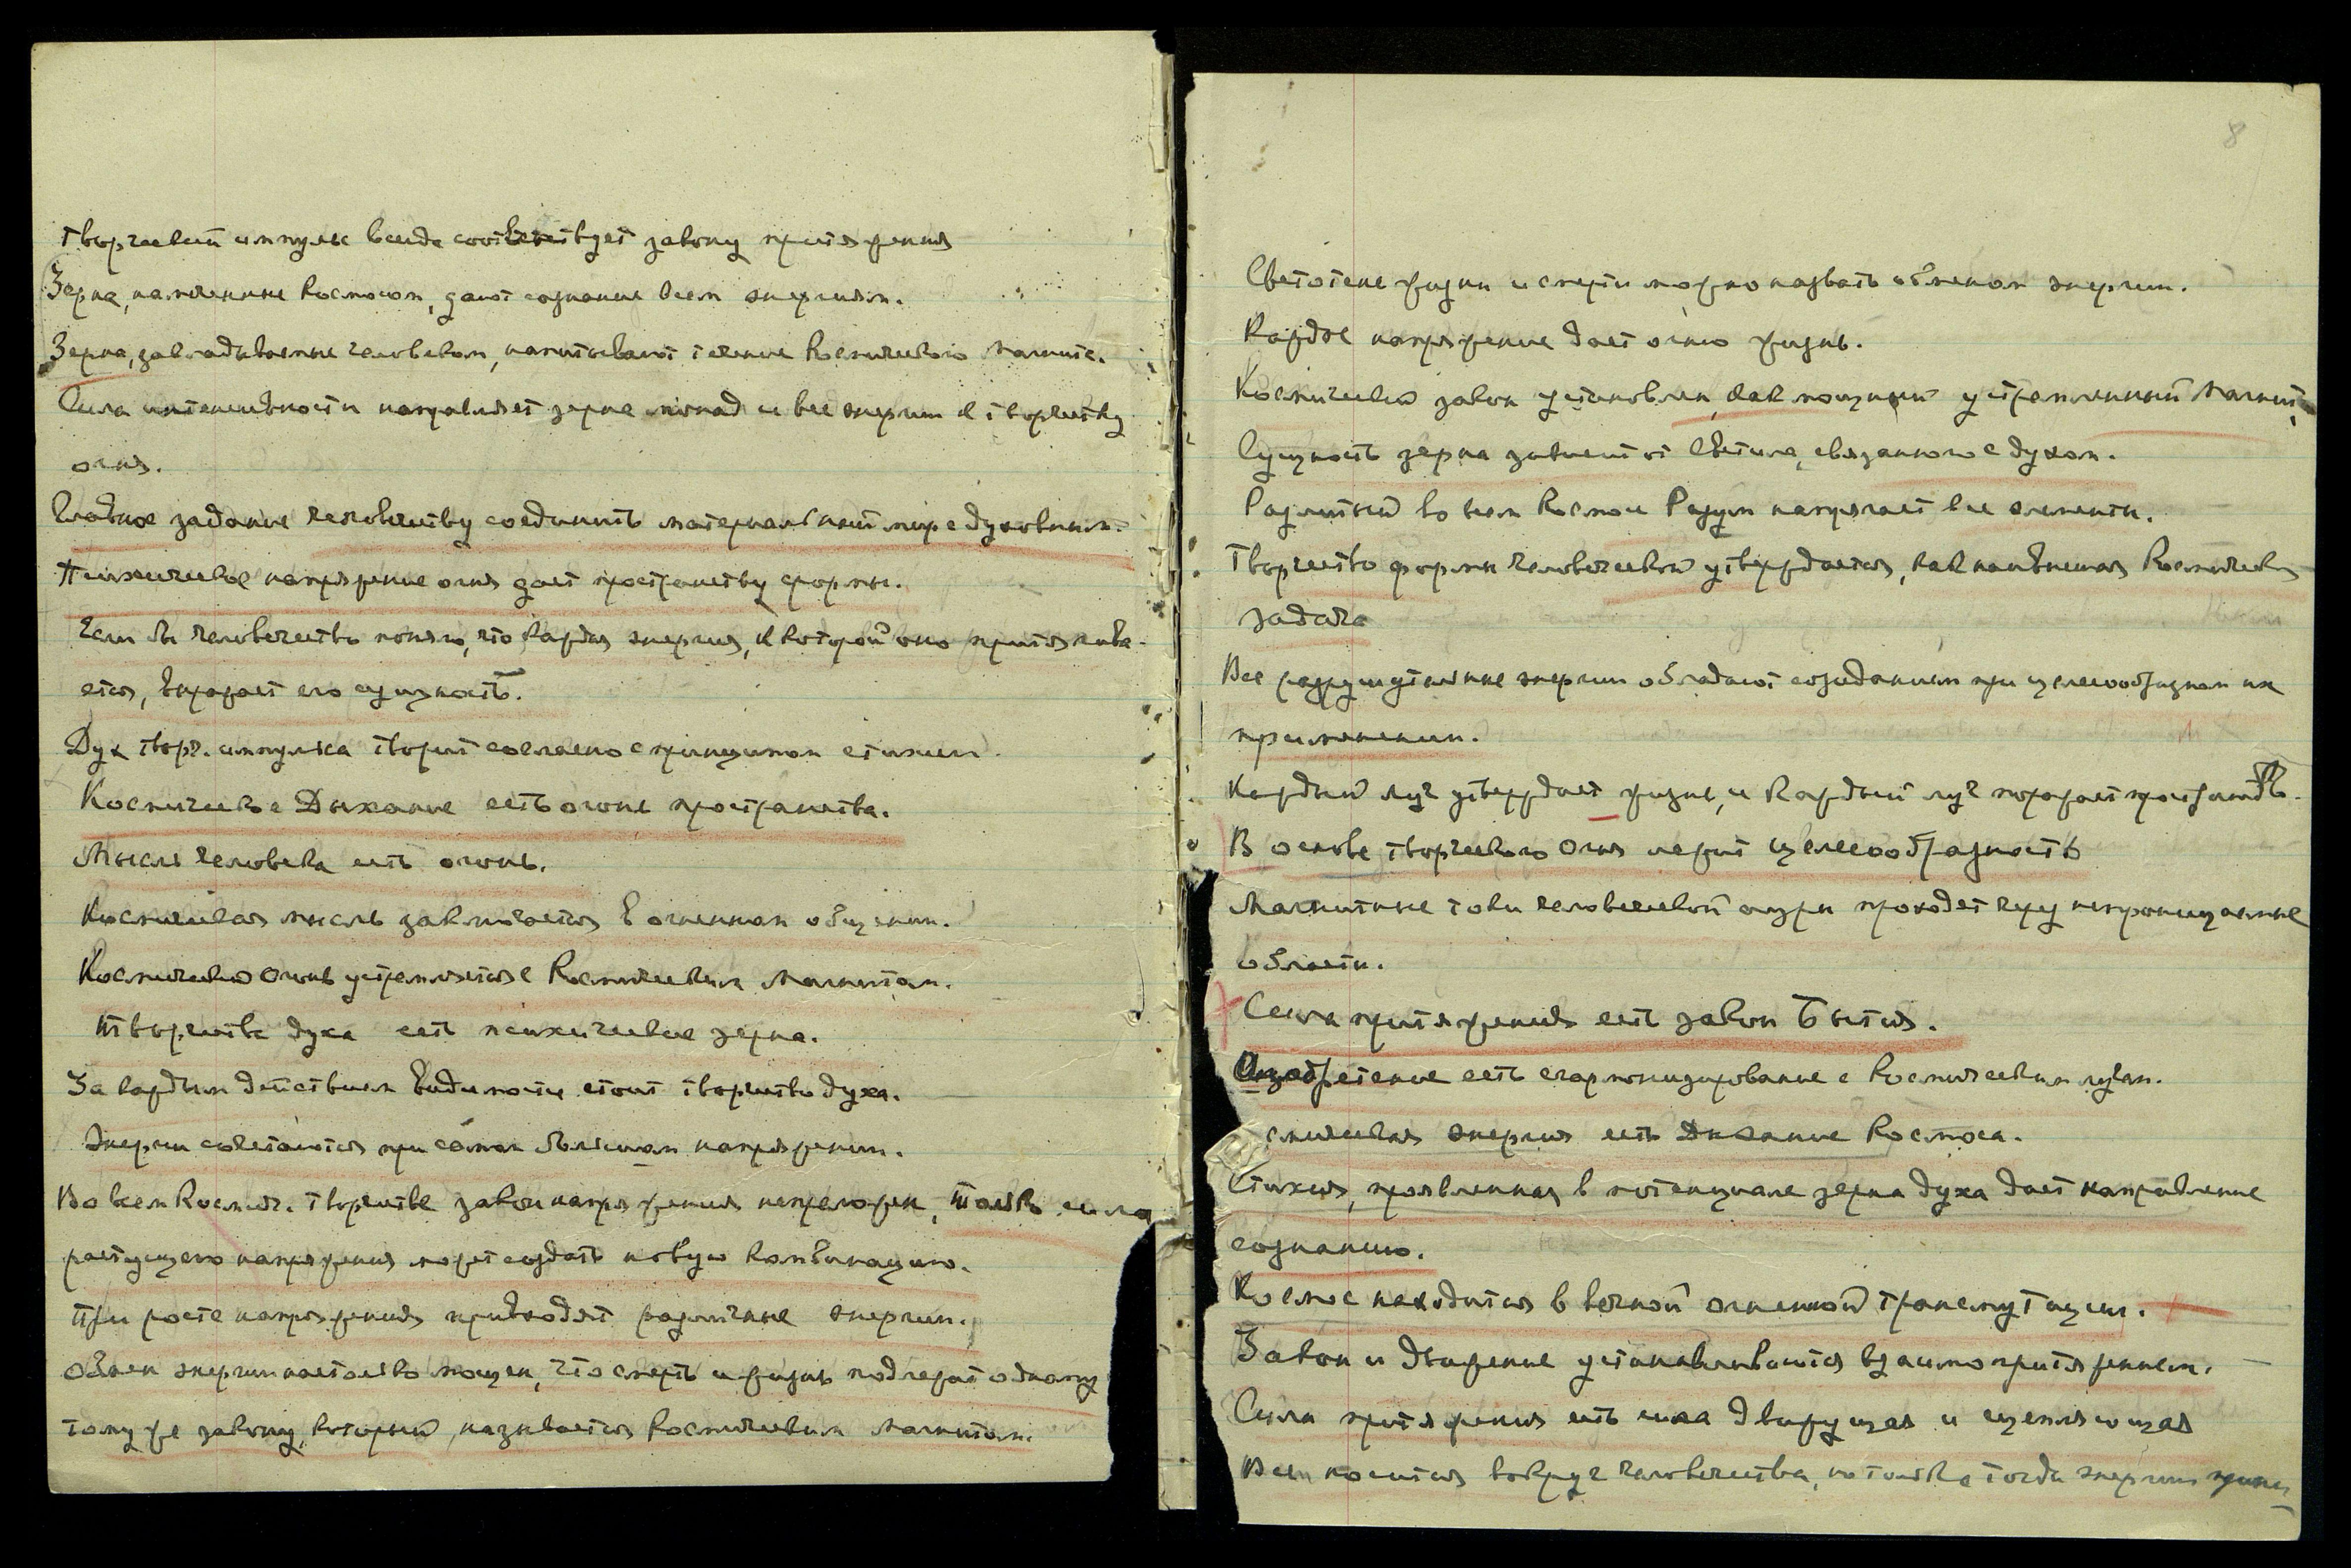 Творческий импульс всегда соответствует закону притяжения
Зерна, намеченные Космосом, дают сознание всем энергиям.
Зерна, закладываемые человеком, напитывают течение Космического Магнита.
Сила интенсивности направляет зерна монад и все энергии к творчеству
огня.
Главное задание человечеству соединить материальный мир с духовным.
Психическое напряжение огня дает пространству формы.
Если бы человечество поняло, что каждая энергия, к которой оно притягива-
ется, выражает его сущность.
Дух творч. импульса творит согласно с принципом стихии
Космическое Дыхание есть огонь пространства.
Мысль человека есть огонь.
Космическая мысль заключается в огненном общении.
Космический Огонь устремляется Космическим Магнитом.
Творчество духа есть психические зерна.
За каждым действием видимости стоит творчество духа.
Энергии сочетаются при самом большом напряжении.
Во всем Космич. творчестве закон напряжения непреложен, только сила
растущего напряжения может создать новую комбинацию.
При росте напряжения привходят различные энергии.
Обмен энергии настолько мощен, что смерть и жизнь подлежат одному
тому же закону, который называется Космическим Магнитом.
8
Светотене жизни и смерти можно назвать обменом энергии.
Каждое напряжение дает огню жизнь.
Космический закон установлен, как мощный устремленный Магнит.
Сущность зерна зависит от Светила, связанного с духом.
Разлитый во всем Космосе Разум напрягает все элементы.
Творчество формы человеческой утверждается, как наивысшая Космическая
задача
Все разрушительные энергии обладают созиданием при целесообразном их
применении.
Каждый луч утверждает жизнь, и каждый луч поражает
В основе творческого Огня лежит целесообразность
Магнитные токи человеческой ауры проходят чрез непроницаемые
области.
Сила притяжения есть закон Бытия.
Изобретение есть сгармонизирование с Космическим лучом.
смическая энергия есть Дыхание Космоса.
Стихия, проявленная в потенциале зерна духа дает направление
сознанию.
Космос находится в вечной огненной трансмутации.
Закон и движение устанавливаются взаимопритяжением.
Сила притяжения есть сила движущая и сцепляющая
Все носится вокруг человечества, но только тогда энергии